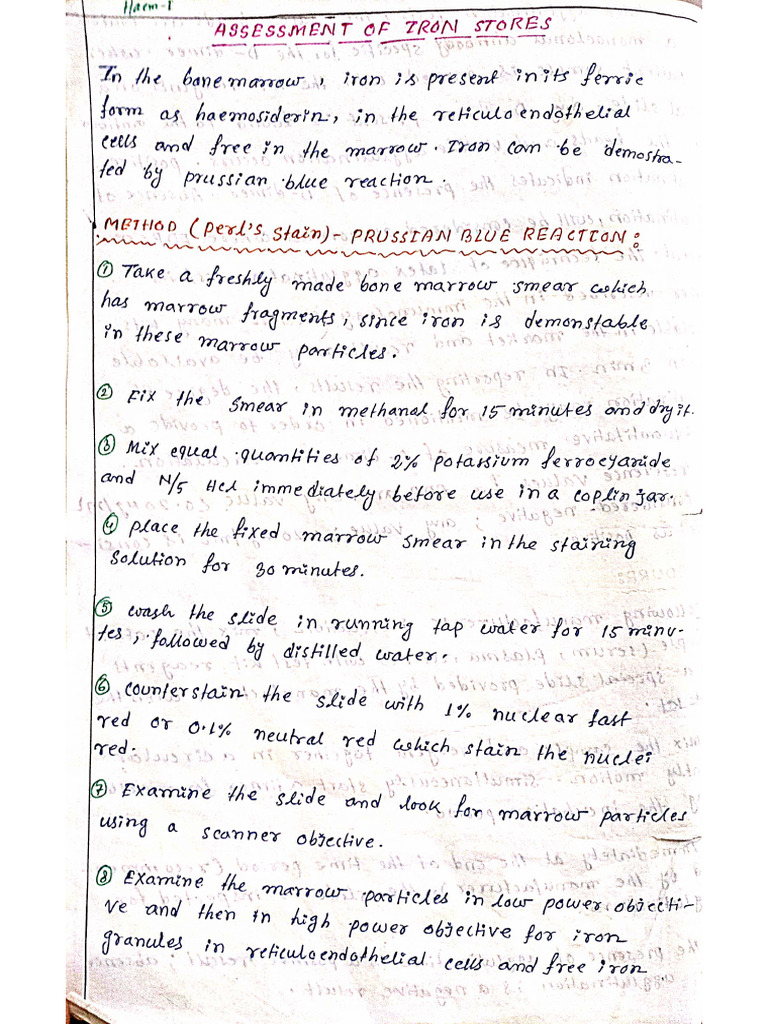 Haem-1
ASSESSMENT OF IRON STORES
In the bone marrow, iron is present in its ferric
form as haemosiderin, in the reticuloendothelial
cells and free in the marrow. Iron can be demostra-
ted by prussian blue reaction.
METHOD (Perl's Stain)- PRUSSIAN BLUE REACTION:
① Take a freshly made bone marrow smear which
has marrow fragments, since iron is demonstable
in these marrow particles.
② Fix the smear in methanal for 15 minutes and dry it.
③ Mix equal quantities of 2% potassium ferrocyanide
and N/5 Hcl immediately before use in a coplin jar.
④ place the fixed marrow smear in the staining
solution for 30 minutes.
⑤ wash the slide in running tap water for 15 minu-
tes, followed by distilled water.
⑥ counterstain the slide with 1% nuclear fast
red or 0.1% neutral red which stain the nuclei
red.
⑦ Examine the slide and look for marrow particles
using a scanner objective.
⑧ Examine the marrow particles in low power objecti-
ve and then in high power objective for iron
granules in reticuloendothelial cells and free iron